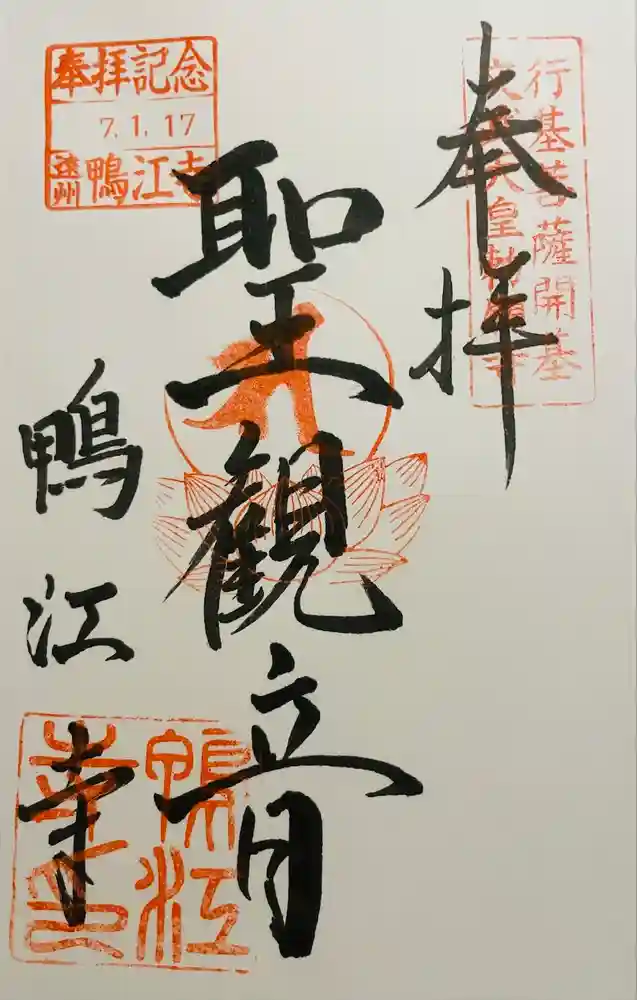 行基菩薩開基
文武天皇勅願寺
奉拝
聖観音
奉拝記念
7.1.17
遠州鴨江寺
鴨江寺
鴨江寺印